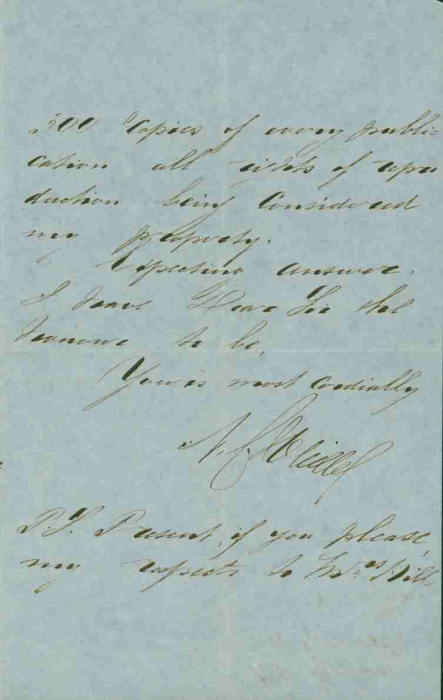 300 Copies of every publi-
cation all rights of repro
duction being Considered
my property.
Expecting answer.
I have Dear Sir the
honour to be,
Yours most cordially
P.S. Present, if you please,
my respects to Mrs Hill